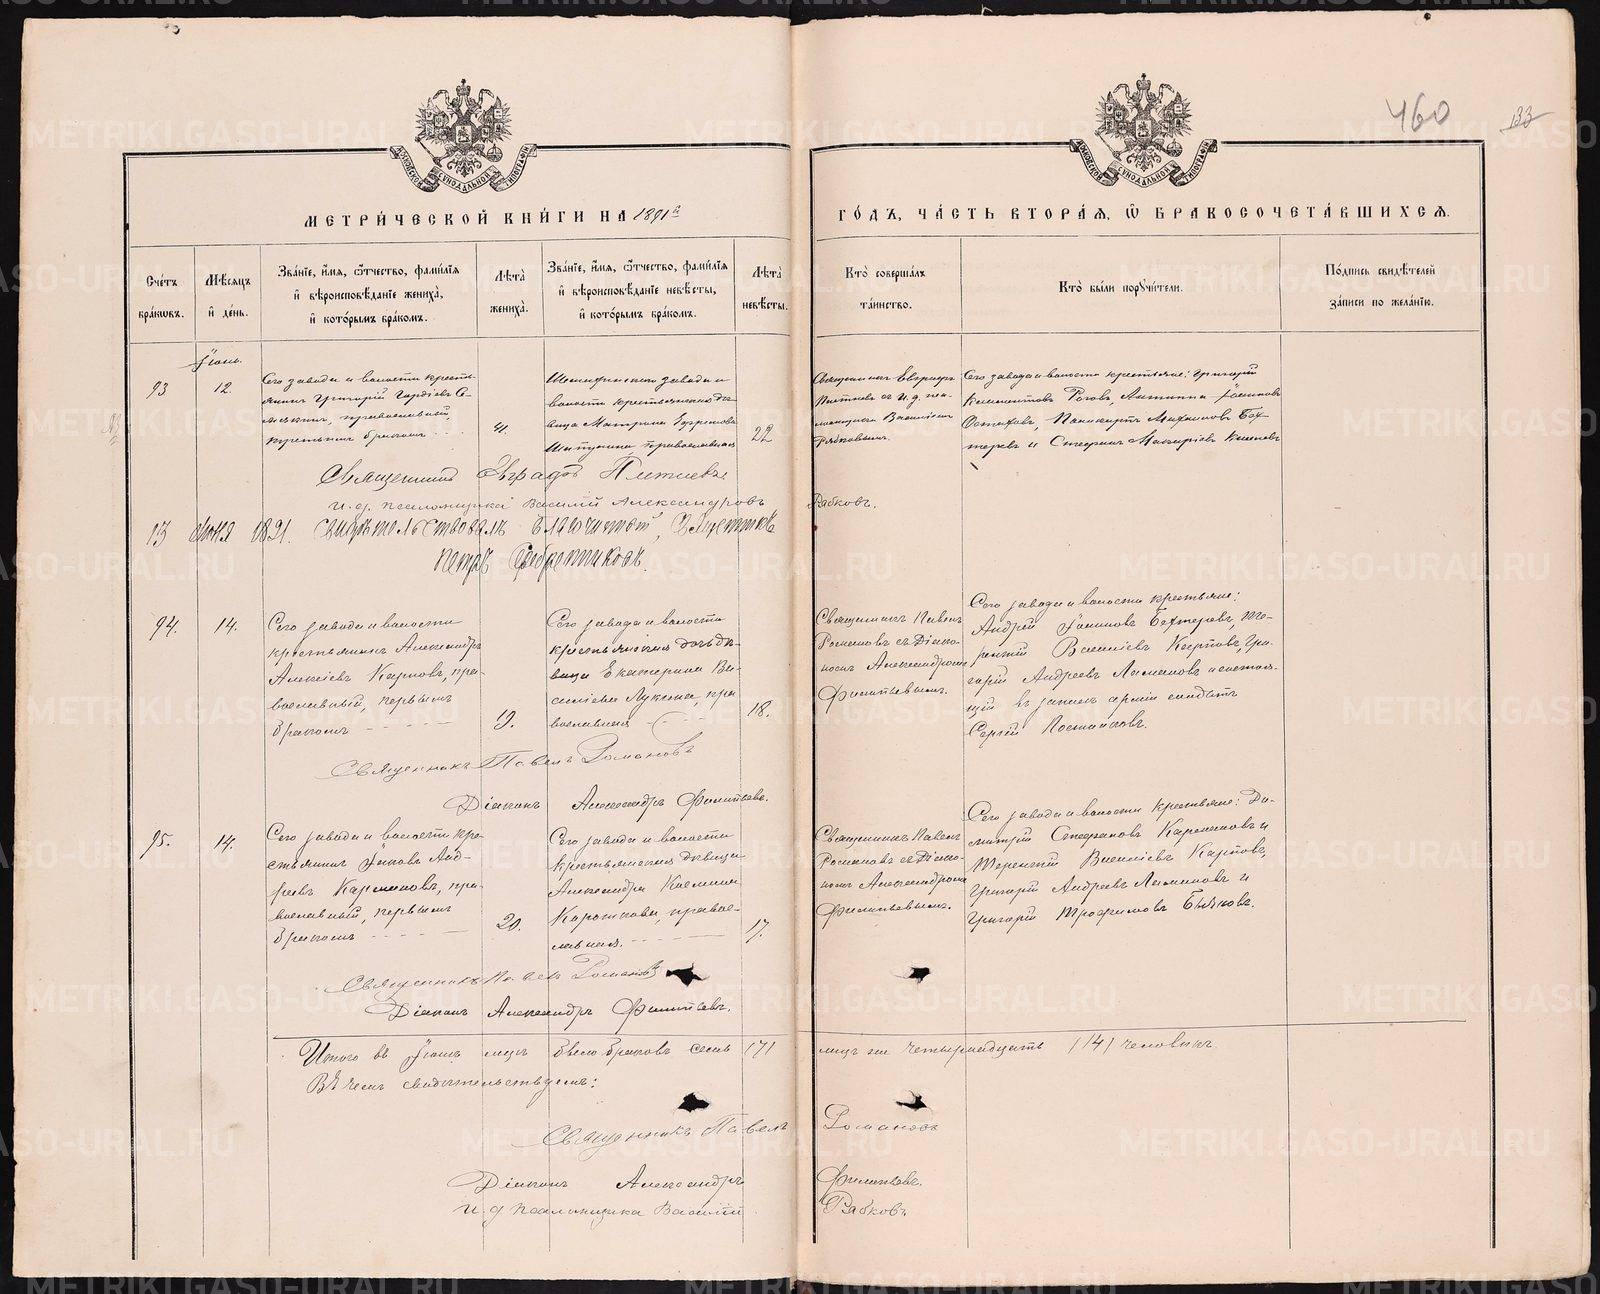 460
33
МОСКОВСКОЙ СѴНОДАЛЬНОЙ ТИПОГРАФІИ
МОСКОВСКОЙ СѴНОДАЛЬНОЙ ТИПОГРАФІИ
МЕТРИ́ЧЕСКОЙ КНИ́ГИ НА 1891й
ГО́ДЪ, ЧА́СТЬ ВТОРА́Я, Ѽ БРАКОСОЧЕТА́ВШИХСЯ.
Сче́тъ бра́кѡвъ.
Мѣ́сяцъ и҆ де́нь.
Зва́нїе, и҆́мѧ, ѻ҆́тчество, фамі́лїѧ и҆ вѣроисповѣ́данїе жениха̀, и҆ кото́рымъ бра́комъ.
Лѣ́та жениха̀.
Зва́нїе, и҆́мѧ, ѻ҆́тчество, фамі́лїѧ и҆ вѣроисповѣ́данїе невѣ́сты, и҆ кото́рымъ бра́комъ.
Лѣ́та невѣ́сты.
Кто̀ соверша́лъ та́инство.
Кто̀ бы́ли порꙋчи́тели.
По́дпись свидѣ́телей за́писи по жела́нїю.
Іюнь.
93
12.
Сего завода и волости кресть-
янинъ Григорій Гордіевъ
православный
третьимъ бракомъ
41.
завода и
волости крестьянская дѣ-
вица Матрона
православная
22
Священникъ Евграфъ
съ и. д. пса-
ломщика Василіемъ
Рябковымъ.
Сего завода и волости крестьяне: Григорій
Климентовъ Роговъ,
Михаиловъ Бох-
теревъ и Стефанъ Макаріевъ
Священникъ Евграфъ
и. д. псаломщика Василій Александровъ
Рябковъ.
13 Июня 1891. Свидѣтельствовалъ Благочинный, Священникъ
Петръ Серебренниковъ.
94.
14.
Сего завода и волости
крестьянинъ Александръ
Алексіевъ Карповъ, пра-
вославный, первымъ
бракомъ
19.
Сего завода и волости
крестьянская дочь дѣ-
вица Екатерина Ва-
силіева Лукина, пра-
вославная
18.
Священникъ Павелъ
Романовъ съ Діако-
номъ Александромъ
Филитьевымъ.
Сего завода и волости крестьяне:
Андрей Іакимовъ Бехтеревъ, Те-
рентій Василіевъ Карповъ, Гри-
горій Андреевъ и состоя-
щій въ запасѣ арміи солдатъ
Сергій
Священникъ Павелъ Романовъ
Діаконъ Александръ Филитьевъ.
95.
14.
Сего завода и волости кре-
стьянинъ Іаковъ Анд-
реевъ пра-
вославный, первымъ
бракомъ
20.
Сего завода и волости
крестьянская дѣвица
Александра Космина
Короткова, правос-
лавная.
17.
Священникъ Павелъ
Романовъ съ Діако-
номъ Александромъ
Филитьевымъ.
Сего завода и волости крестьяне: Ди-
митрій Стефановъ и
Терентій Василіевъ Карповъ,
Григорій Андреевъ и
Григорій Трофимовъ
Священникъ Павелъ Романовъ
Діаконъ Александръ Филитьевъ.
Итого въ Іюнѣ мцѣ было браковъ семь /7/
лицъ же четырнадцать /14/ человѣкъ.
Въ чемъ свидѣтельствуемъ:
Священникъ Павелъ Романовъ
Діаконъ Александръ Филитьевъ.
И. д. псаломщика Василій Рябковъ
METRIKI.GASO-URAL.RU